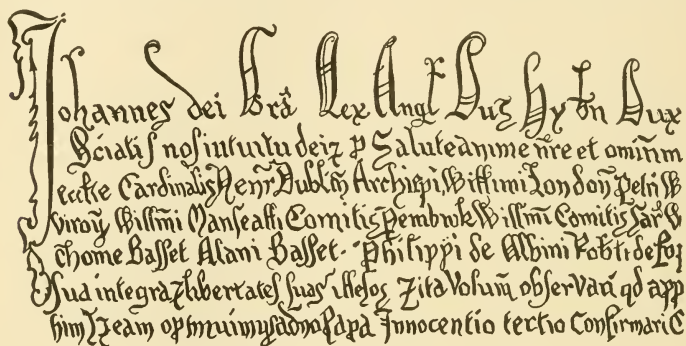 Johannes dei Grã Rex Angł Dūs Hybn Dux
Sciatis nos intuitu dei ⁊ p Salute anime nr̃e et omniũm
eccłie Cardinalis Henr̃ Dubliñ Archiep̃i Willmi London Petri W
Willm̃i Maresałłi Comitis Pembrok Willm̃i Comitis Sar̃ W
thome Basset Alani Basset Philippi de Albini Rob̃ti de
Sua integra ⁊ libertates suas illesas ⁊ ita Volum̃ observari qd app
Papa Innocentio tertio Confirmari